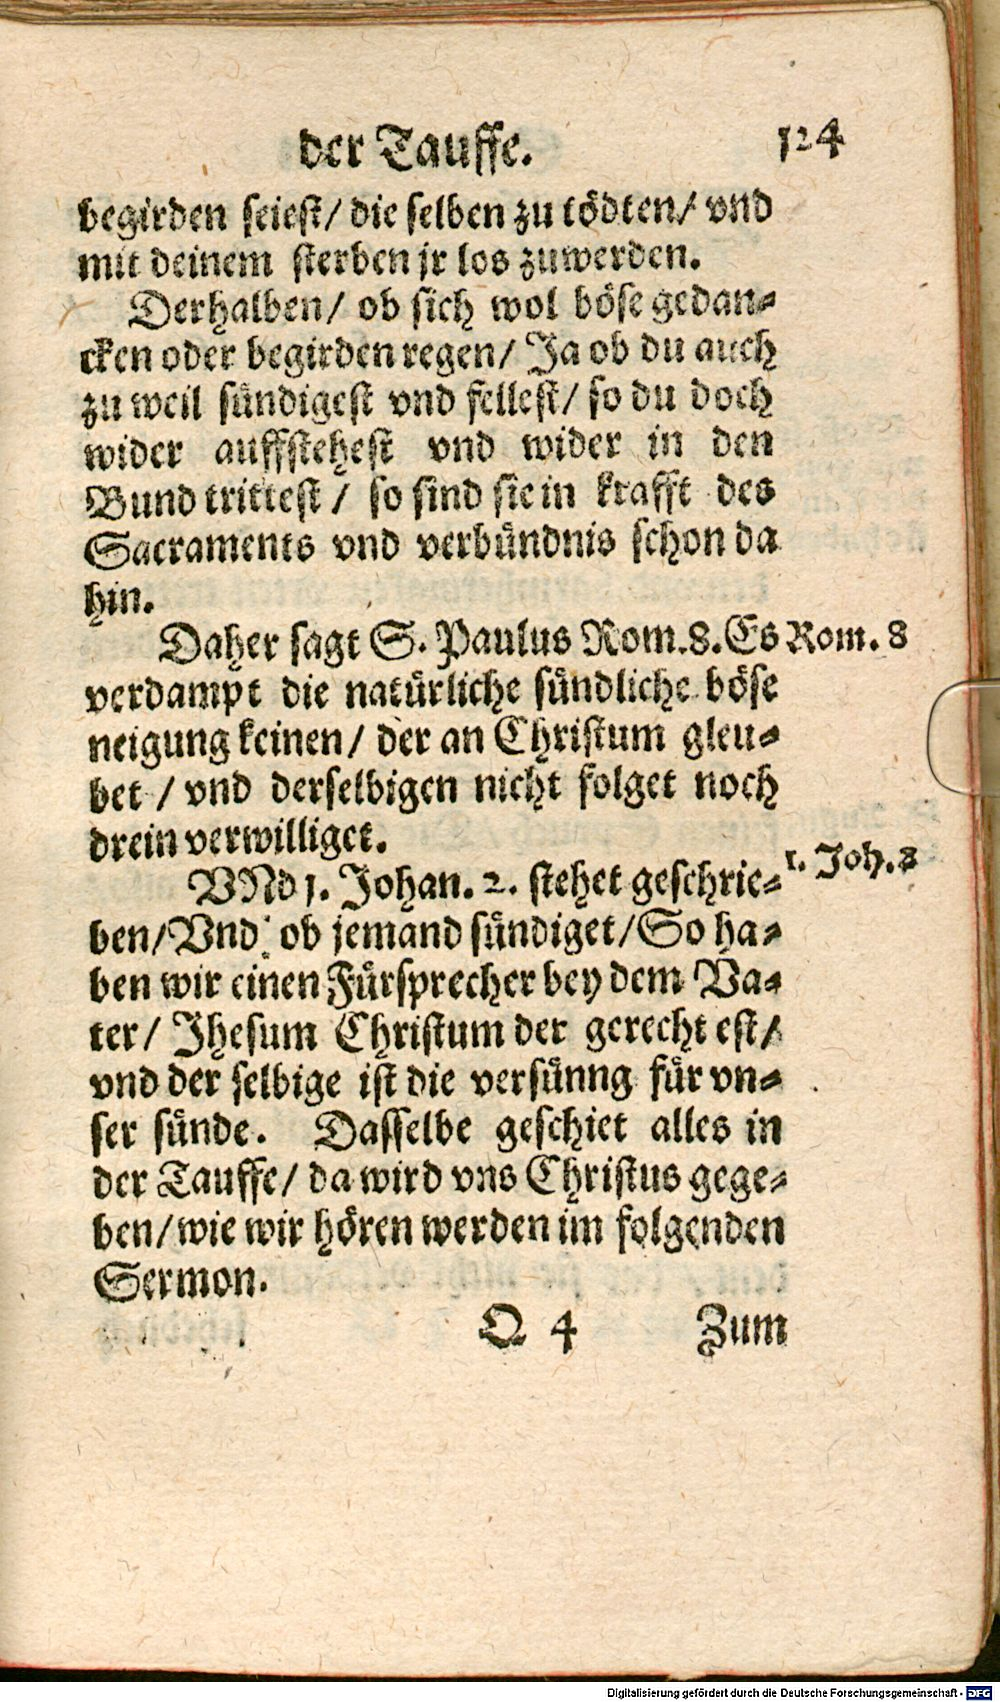 der Tauffe. 124
begirden seiest/ die selben zu tödten/ vnd
mit deinem sterben jr los zuwerden.
Derhalben/ ob sich wol böse gedan-
cken oder begirden regen/ Ja ob du auch
zu weil sündigest vnd fellest/ so du doch
wider auffstehest vnd wider in den
Bund trittest/ so sind sie in krafft des
Sacraments vnd verbündnis schon da
hin.
Daher sagt S. Paulus Rom.8. Es Rom. 8
verdampt die natürliche sündliche böse
neigung keinen/ der an Christum gleu-
bet / vnd derselbigen nicht folget noch
drein verwilliget.
VNd 1. Johan. 2. stehet geschrie- 1. Joh. 2
ben/ Vnd ob jemand sündiget/ So ha-
ben wir einen Fürsprecher bey dem Va-
ter/ Jhesum Christum der gerecht est/
vnd der selbige ist die versünng für vn-
ser sünde. Dasselbe geschiet alles in
der Tauffe/ da wird vns Christus gege-
ben/ wie wir hören werden im folgenden
Sermon.
Q 4 Zum
Digitalisierung gefördert durch die Deutsche Forschungsgemeinschaft - DFG